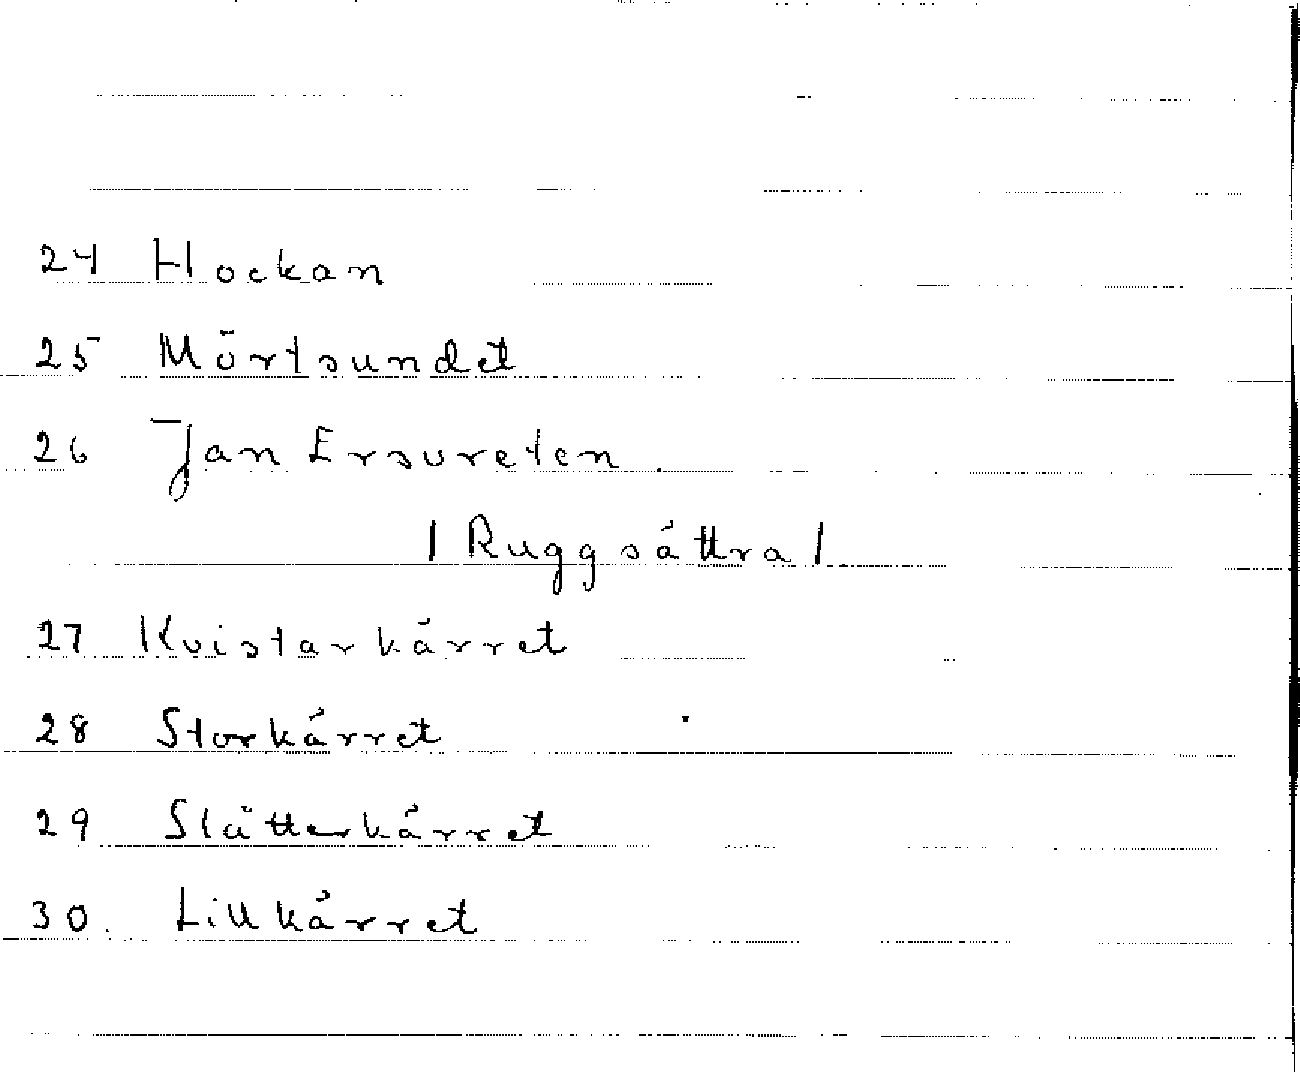 24 Hockan
25 Mörtsundet
26 Jan Ersvreten
/ Ruggsättra /
27 Kvistarkärret
28 Storkärret
29 Slätterkärret
30. Lillkärret